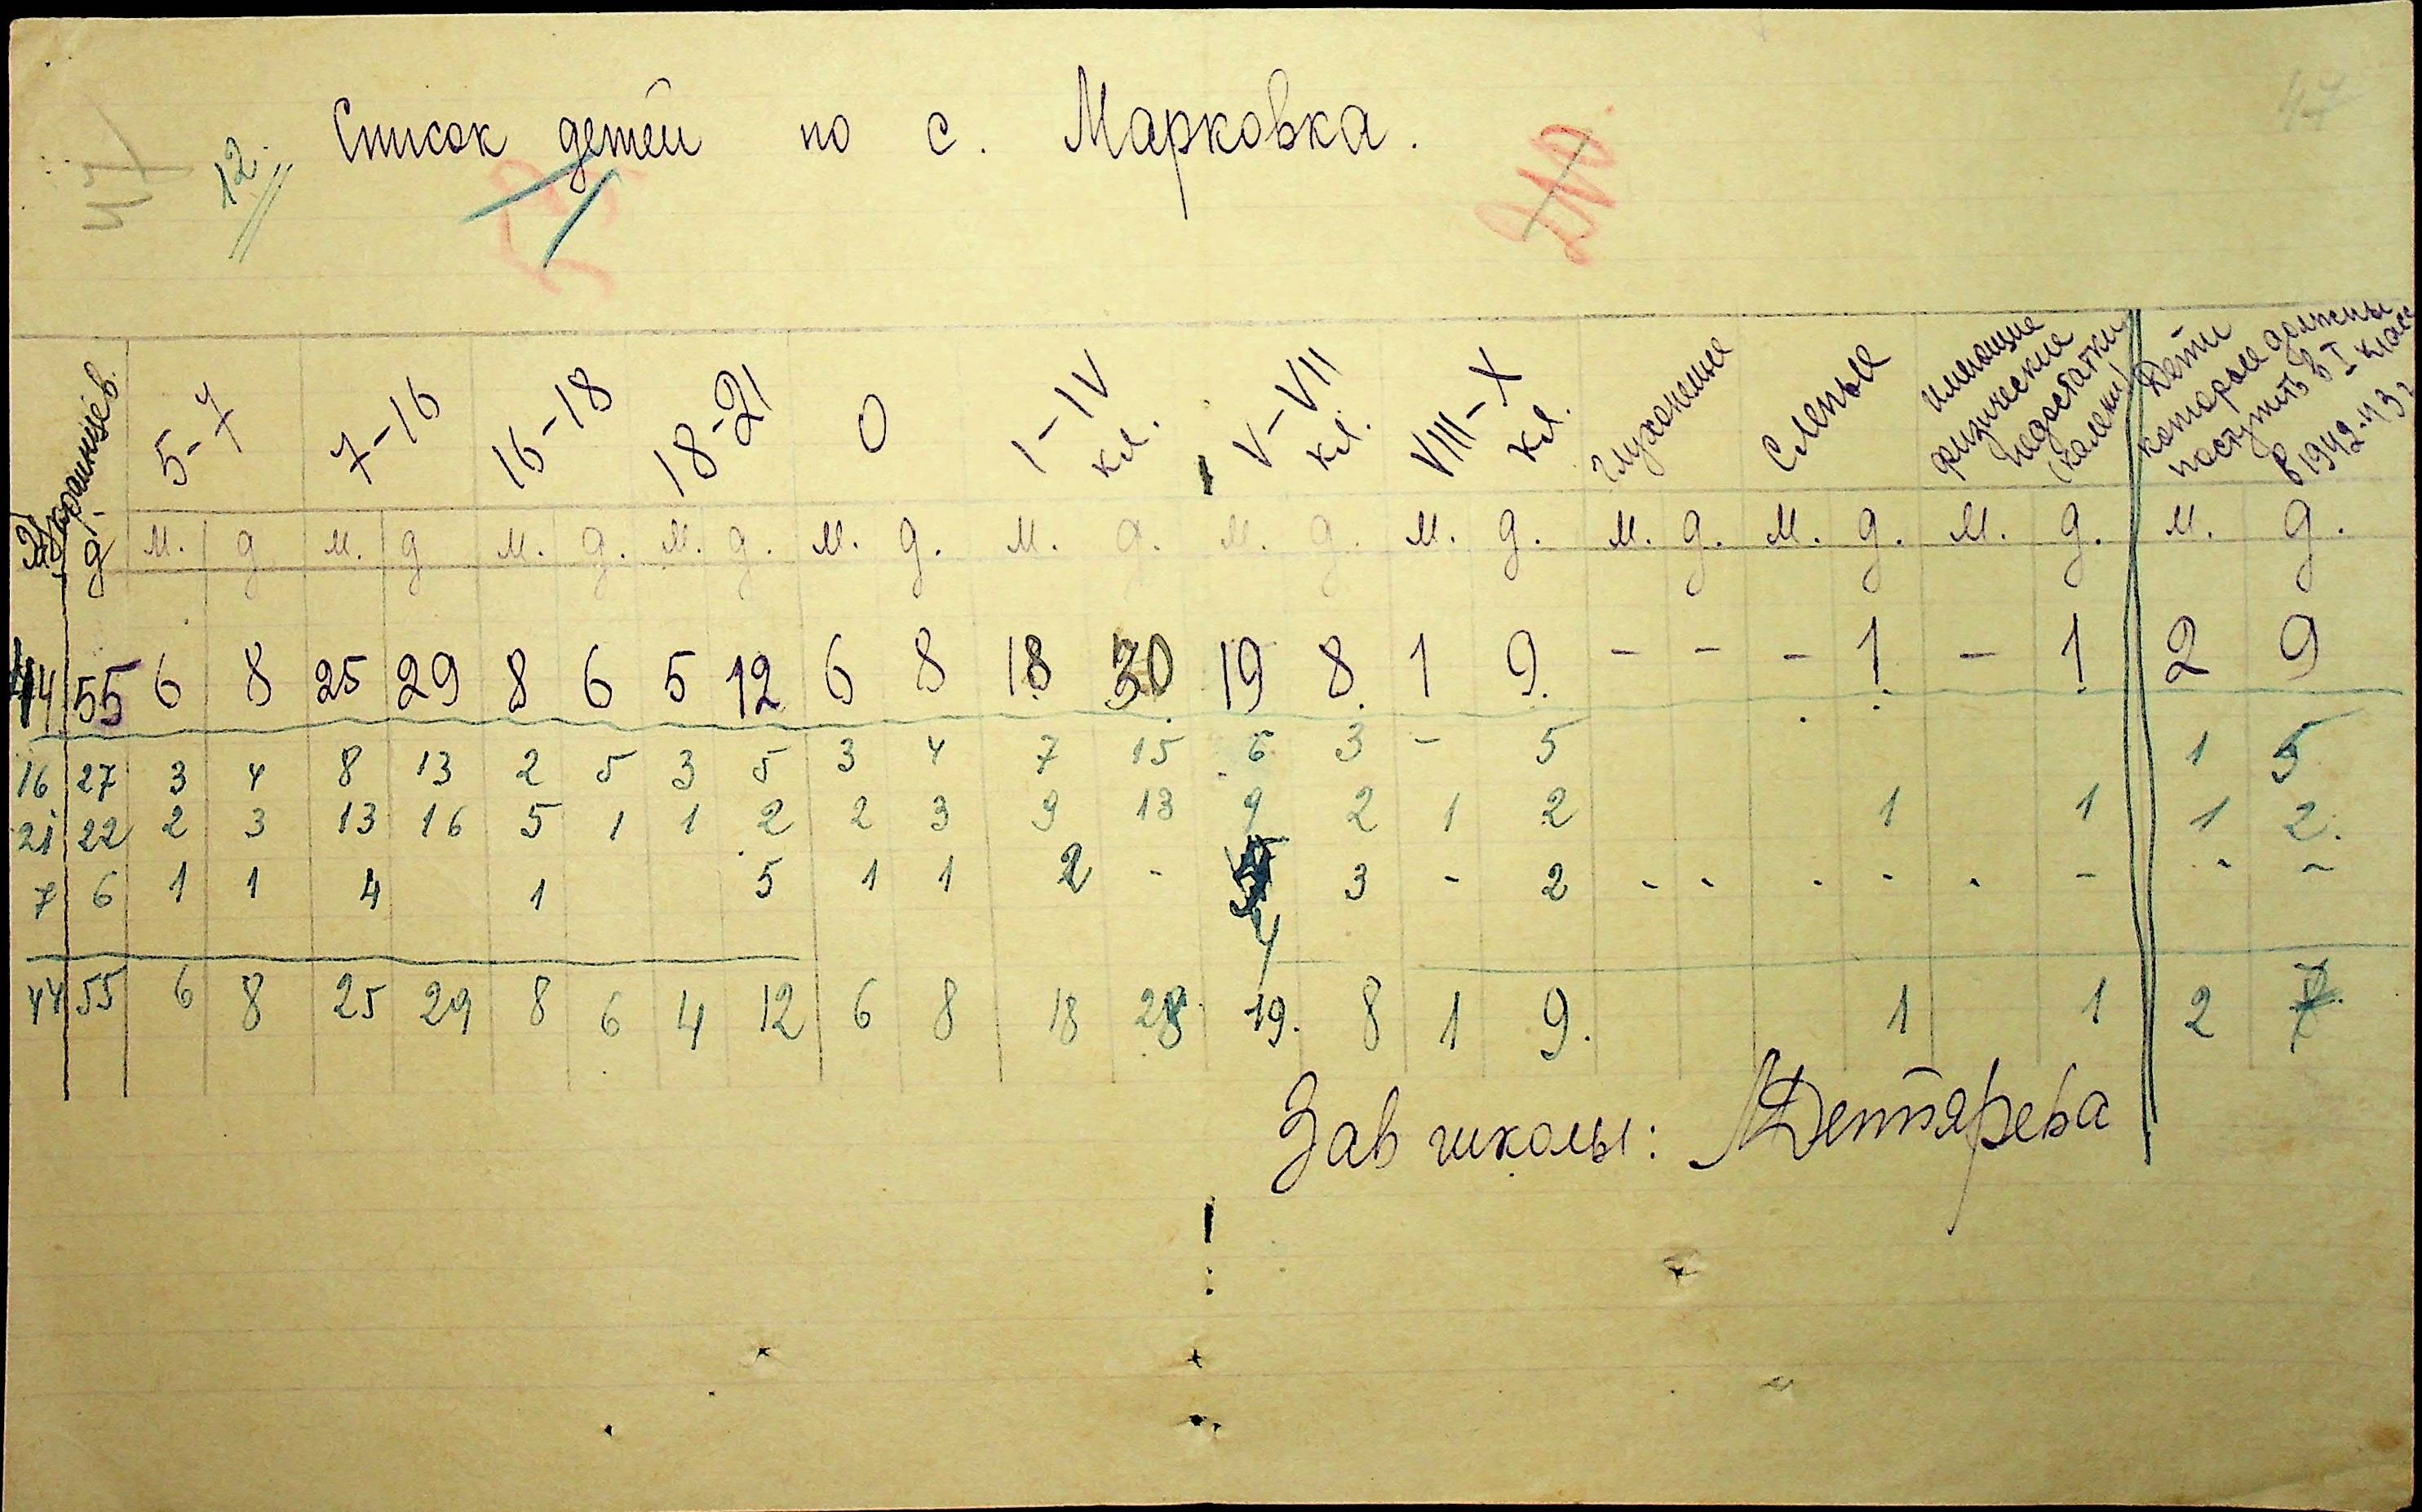 47
12.
Список детей по с. Марковка.
украинцев. 5-7 7-16 16-18 18-21 0 I-IV кл. V-VII кл. VIII-X кл. глухонемые Слепые имеющие физические недостатки (калеки) Дети которые должны поступить в I класс в 1942-43 г
д м. д м. д м. д. м. д. м. д. м. д. м. д. м. д. м. д. м. д. м. д. м. д.
44 55 6 8 25 29 8 6 5 12 6 8 18 30 19 8 1 9 - - - 1 - 1 2 9
16 27 3 4 8 13 2 5 3 5 3 4 7 15 6 3 - 5 1 5
21 22 2 3 13 16 5 1 1 2 2 3 9 13 9 2 1 2 1 1 1 2.
7 6 1 1 4 1 5 1 1 2 - 4 3 - 2 - - - - - - - -
44 55 6 8 25 29 8 6 4 12 6 8 18 28 19. 8 1 9. 1 1 2 7
Зав школы: Дегтярева